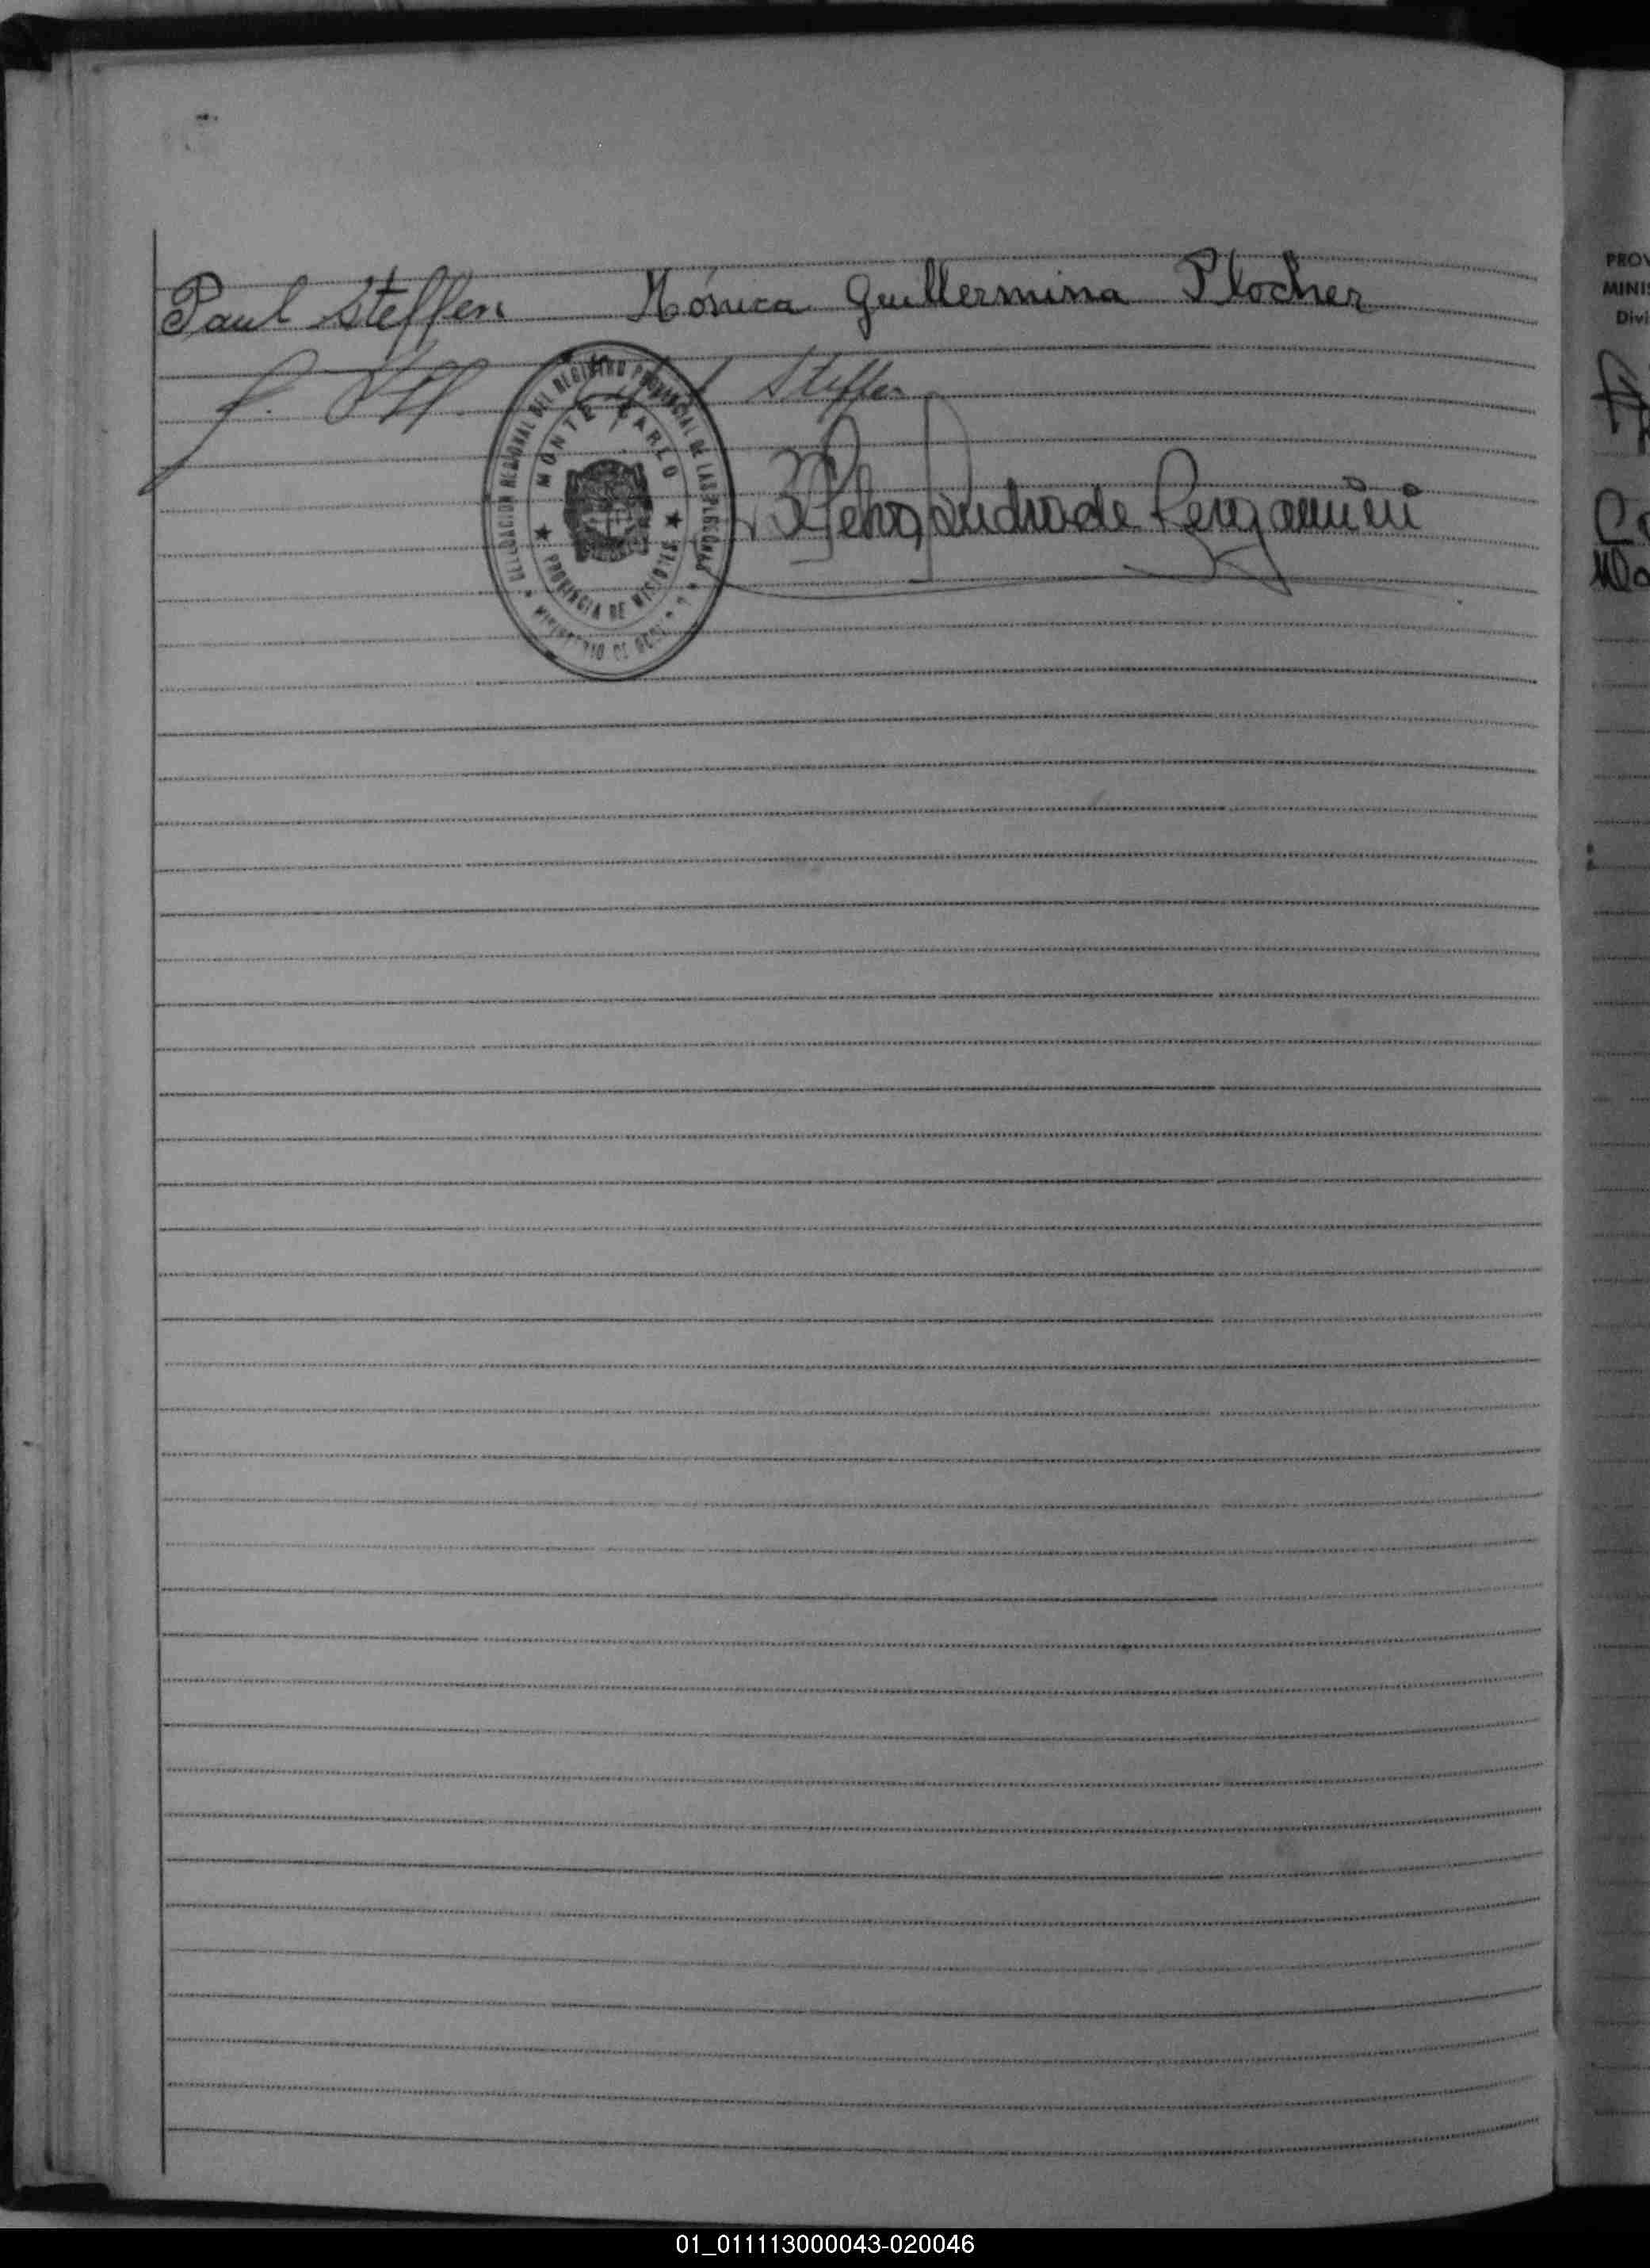 Paul Steffen Mónica Guillermina Plocher
J. Steffen
DELEGACION REGIONAL DEL REGISTRO PROVINCIAL DE LAS PERSONAS
MONTE CARLO
PROVINCIA DE MISIONES
MINISTERIO DE
Andrade
PROV
MINIS
Divi
01_011113000043-020046